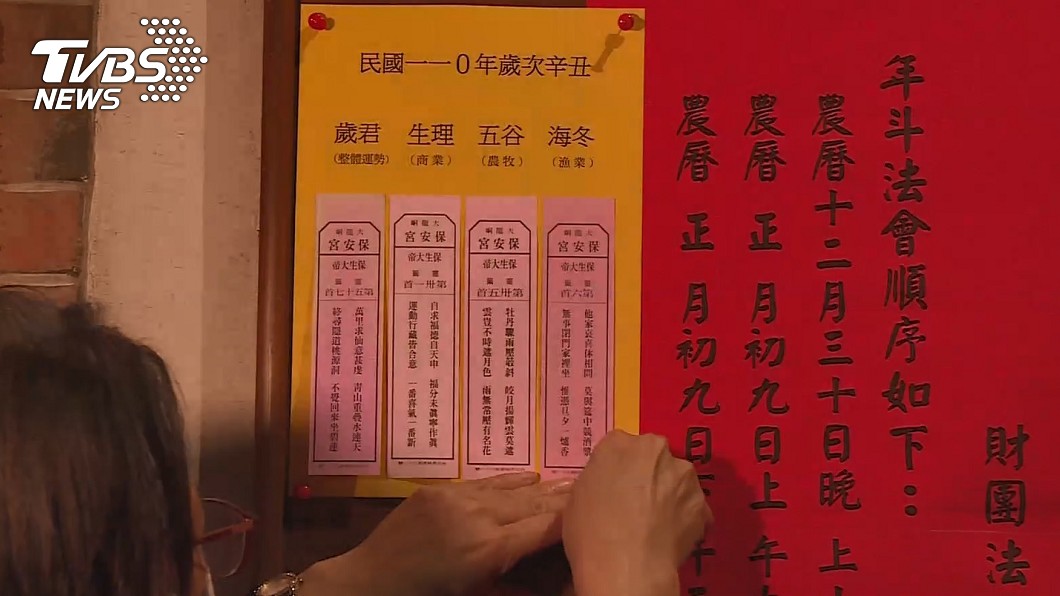 TVBS
NEWS
民國一一0年歲次辛丑
歲君 生理 五谷 海冬
(整體運勢) (商業) (農牧) (漁業)
大龍峒
保安宮
保生大帝
靈籤
第五十七首
萬里求仙意甚虔 青山重疊水連天
終尋隱道桃源洞 不覺回來坐碧蓮
大龍峒
保安宮
保生大帝
靈籤
第卅一首
自求福德自天申 福分未真寧作真
運動行藏皆合意 一番喜氣一番新
大龍峒
保安宮
保生大帝
靈籤
第卅五首
牡丹驟雨壓若斜 皎月揚輝雲莫遮
雲豈不時遮月色 雨無常壓有名花
大龍峒
保安宮
保生大帝
靈籤
第六首
他家哀喜休相問 莫與途中競酒
無事閉門家裡坐 惟憑旦夕一爐香
財團法
年斗法會順序如下：
農曆十二月三十日晚上
農曆 正 月初九日上午
農曆 正 月初九日下午